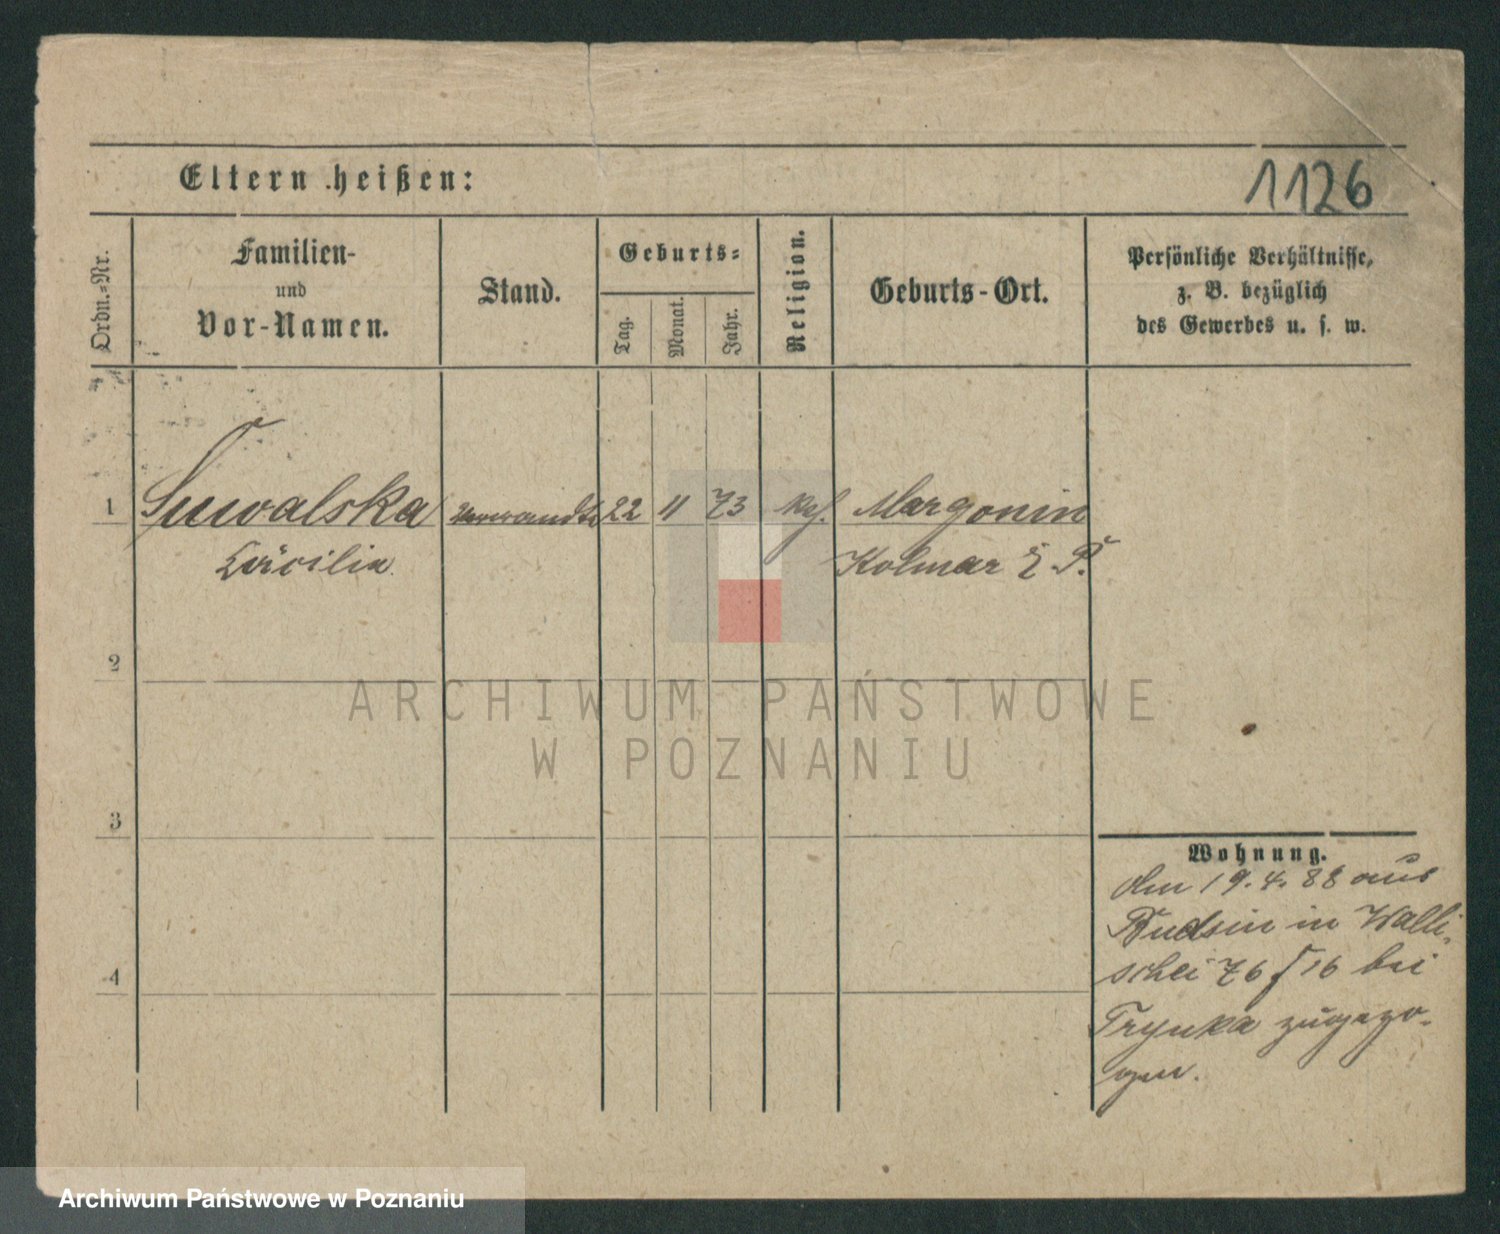 Eltern heißen:
1126
Ordn.-Nr.
Familien-
und
Vor-Namen.
Stand.
Geburts-
Tag.
Monat.
Jahr.
Religion.
Geburts-Ort.
Persönliche Verhältnisse,
z. B. bezüglich
des Gewerbes u. s. w.
1 Suwalska Verwandte 22 11 73 kath. Margonin
Cäcilia Kolmar i. P.
2
3
4
ARCHIWUM PAŃSTWOWE
W POZNANIU
Wohnung.
Am 19.4.88 aus
Budsin in Walli-
schei 76 f 16 bei
Trynka zugezo-
gen.
Archiwum Państwowe w Poznaniu